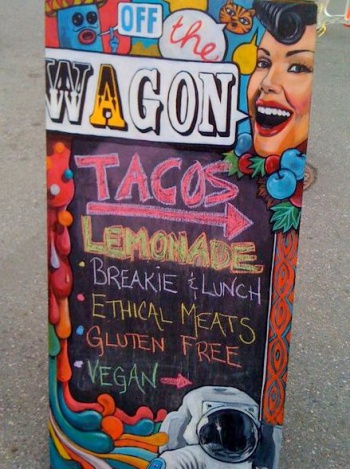 OFF
the
WAGON
TACOS
LEMONADE
BREAKIE & LUNCH
ETHICAL MEATS
GLUTEN FREE
VEGAN